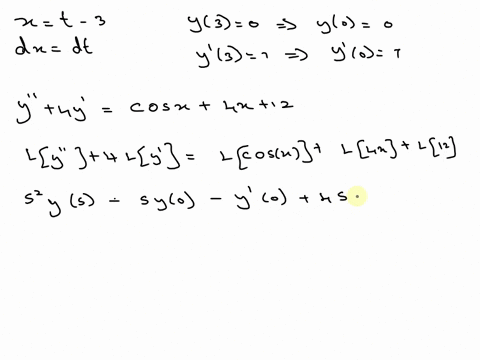 x = t - 3 y(3)=0 => y(0) = 0
dx = dt y'(3)=7 => y'(0)=7
y'' + 4y' = cosx + 4x+12
L[y''] + 4 L[y'] = L[cos(x)] + L[4x] + L[12]
s² y(s) - sy(0) - y'(0) + 4s